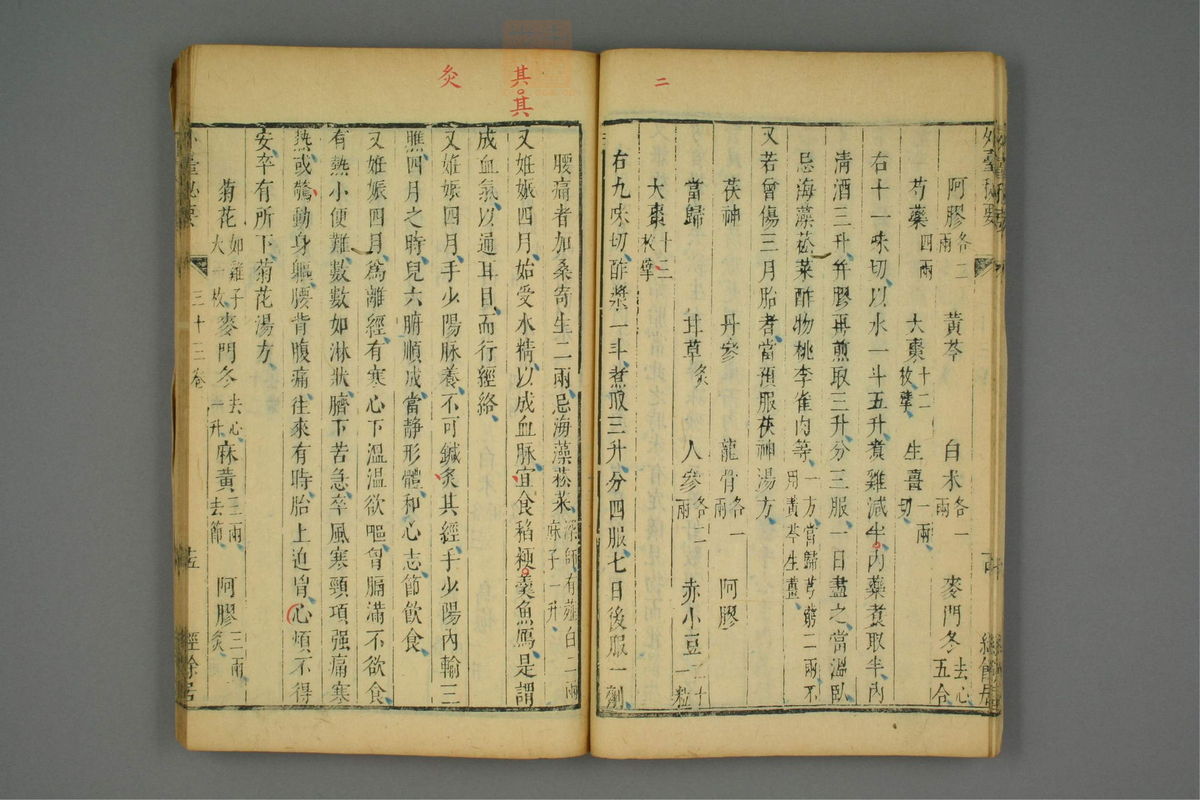 二
外臺秘要
阿膠各二兩 黃芩 白朮各一兩 麥門冬去心五合
芍藥四兩 大棗十二枚擘 生薑一兩切
右十一味切以水一斗五升煑雞減半内藥煑取半内
清酒三升并膠再煎取三升分三服一日盡之當溫臥
忌海藻菘菜酢物桃李雀肉等一方當歸芎藭二兩不用黃芩生薑
又若曾傷三月胎者當預服茯神湯方
茯神 丹參 龍骨各一兩 阿膠
當歸 甘草炙 人參各二兩 赤小豆二十一粒
大棗十二枚擘
右九味切酢漿一斗煑取三升分四服七日後服一劑
其 其
灸
腰痛者加桑寄生二兩忌海藻菘菜深師有薤白二兩麻子一升
又姙娠四月始受水精以成血脉宜食稻粳羹魚鴈是謂
成血氣以通耳目而行經絡
又姙娠四月手少陽脉養不可鍼灸其經手少陽内輸三
膲四月之時兒六腑順成當静形體和心志節飲食
又姙娠四月爲離經有寒心下溫溫欲嘔胷膈滿不欲食
有熱小便難數數如淋狀臍下苦急卒風寒頸項强痛寒
熱或驚動身軀腰背腹痛往來有時胎上迫胷心煩不得
安卒有所下菊花湯方
菊花如雞子大一枚 麥門冬去心一升 麻黃三兩去節 阿膠三兩炙
外臺秘要 三十三卷 十五 經餘居